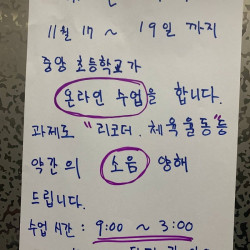 11월 17 ~ 19일 까지
중앙 초등학교가
온라인 수업을 합니다.
과제로 "리코더, 체육율동"등
약간의 소음 양해
드립니다.
수업 시간 : 9:00 ~ 3:00